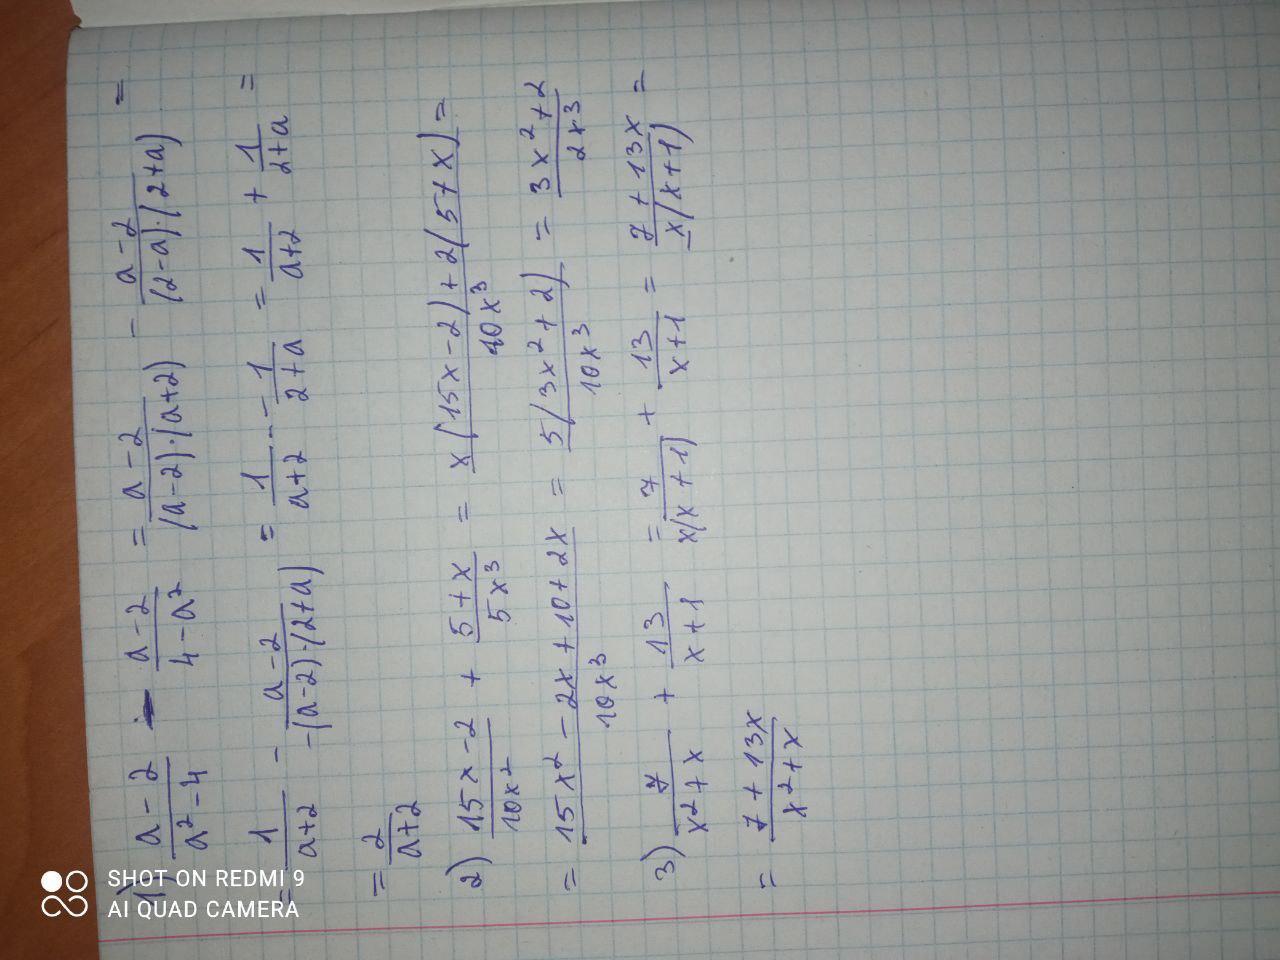 1) \frac{a-2}{a^2-4} - \frac{a-2}{4-a^2} = \frac{a-2}{(a-2)·(a+2)} - \frac{a-2}{(2-a)·(2+a)} =
= \frac{1}{a+2} - \frac{a-2}{-(a-2)·(2+a)} = \frac{1}{a+2} - - \frac{1}{2+a} = \frac{1}{a+2} + \frac{1}{2+a} =
= \frac{2}{a+2}
2) \frac{15x-2}{10x^2} + \frac{5+x}{5x^3} = \frac{x(15x-2)+2(5+x)}{10x^3} =
= \frac{15x^2-2x+10+2x}{10x^3} = \frac{5(3x^2+2)}{10x^3} = \frac{3x^2+2}{2x^3}
3) \frac{7}{x^2+x} + \frac{13}{x+1} = \frac{7}{x(x+1)} + \frac{13}{x+1} = \frac{7+13x}{x(x+1)} =
= \frac{7+13x}{x^2+x}
SHOT ON REDMI 9
AI QUAD CAMERA